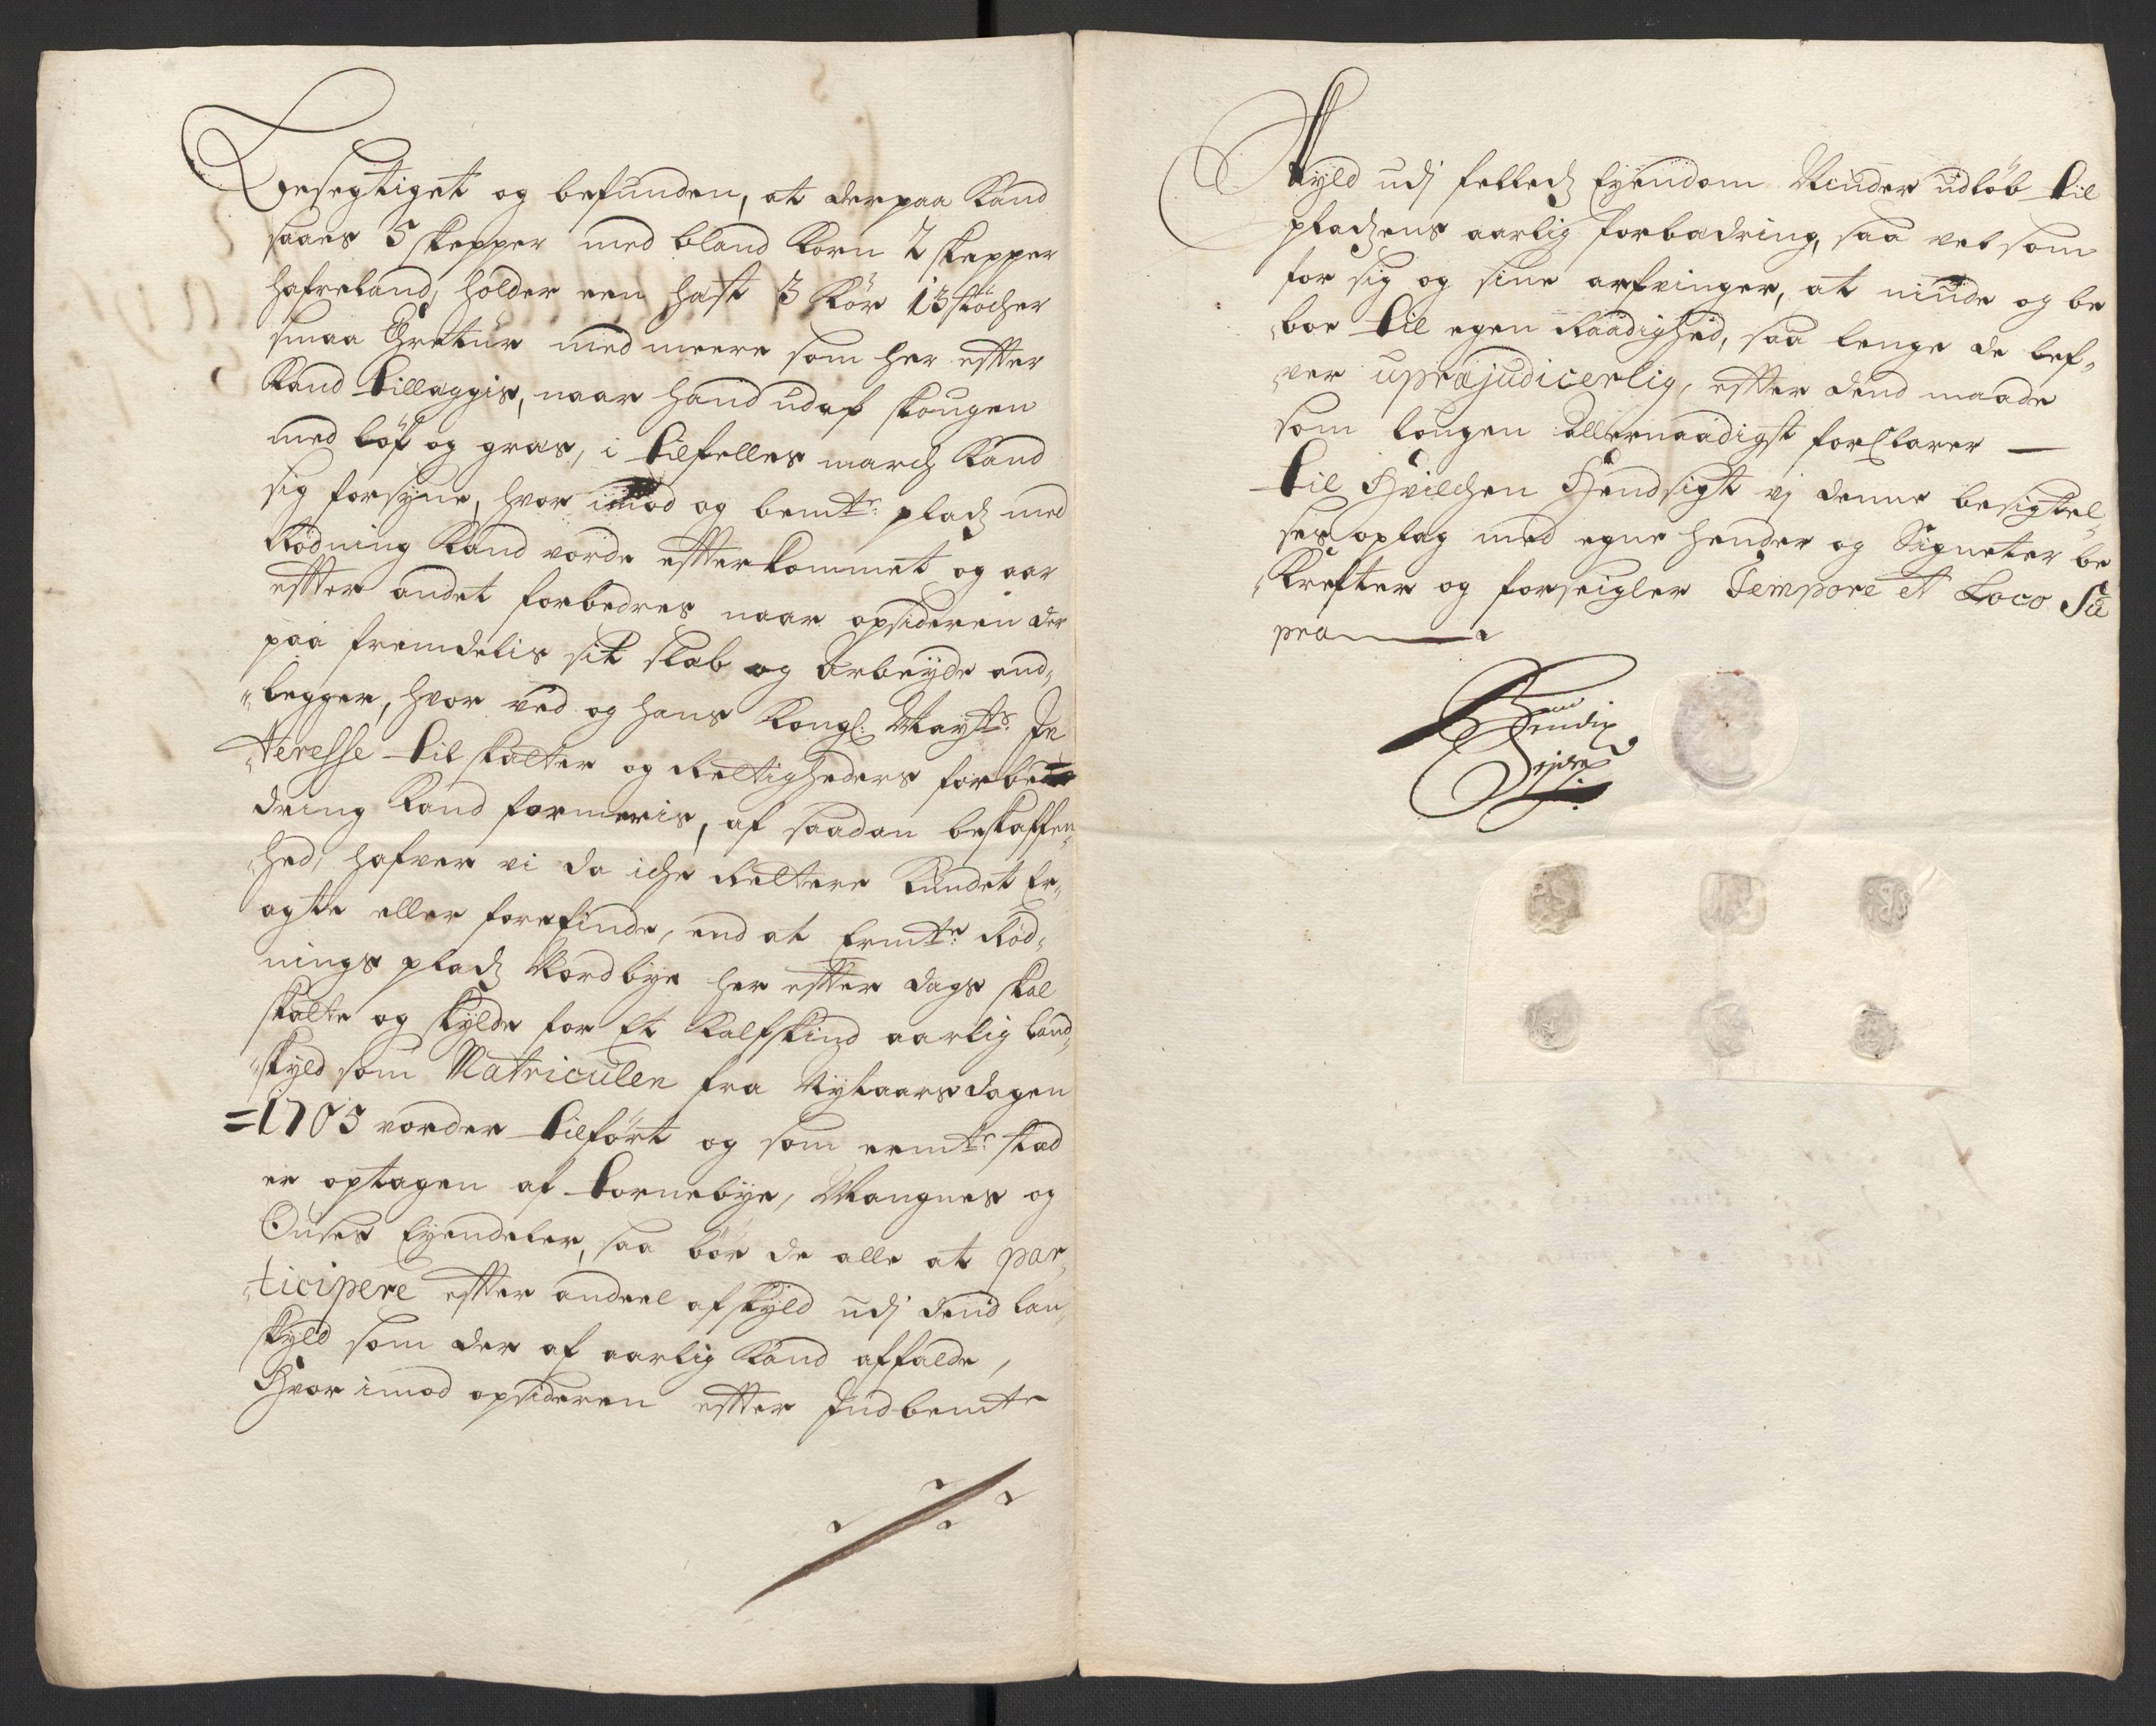 Besegtiget og befunden, at derpaa kand
saaes 5 skepper med bland korn 2 skepper
hafreland, holder een hest 3 kör 13 stöcher
smaa Creatur med meere som her effter
kand tillæggis, naar hand udaf skougen
med löf og græs, i tilfelles march kand
sig forsyne, hvor imod og bemte: pladz med
Rödning kand vorde effterkommet og aar
effter andet forbedres naar opsideren der
paa fremdelis sit slab og arbeyde and„
„legger, hvor ved og hans Kongl: Mayts: In
„teresse til skatter og Rettigheders forbe
dring kand formeris, af saadan beskaffen„
„hed, hafver vi da iche Rettere kundet Er„
agte eller forefinde, end at Ermte: Röd„
nings pladz Nordbye her effter dags skal
skatte og skylde for Et kalfskind aarlig land„
„skyld som Matriculen fra Nytaarsdagen
=1703 vorder tilfört og som ermte: stad
er optagen af Tornebye, Mangnes og
Ouses Eyendeler, saa bör de alle at par„
„ticipere effter andeel afskyld udj dend lan„
skyld som der af aarlig kand affalde,
Hvor imod opsideren effter Indbemte
Skyld udj felledz Eyendom Nyder udlöb til
pladzens aarlig forbædring, saa vel som
for sig og sine arfvinger, at niude og be
„boe til egen Raadighed, saa lenge de lef„
„ver upræjudicerlig, effter dend maade
som lougen allernaadigst forclarer —
til Hvilchen Hendsigt vj denne besigtel„
ses optag med egne hender og Signeter be
„krefter og forseigler Tempore et Loco Su
pra